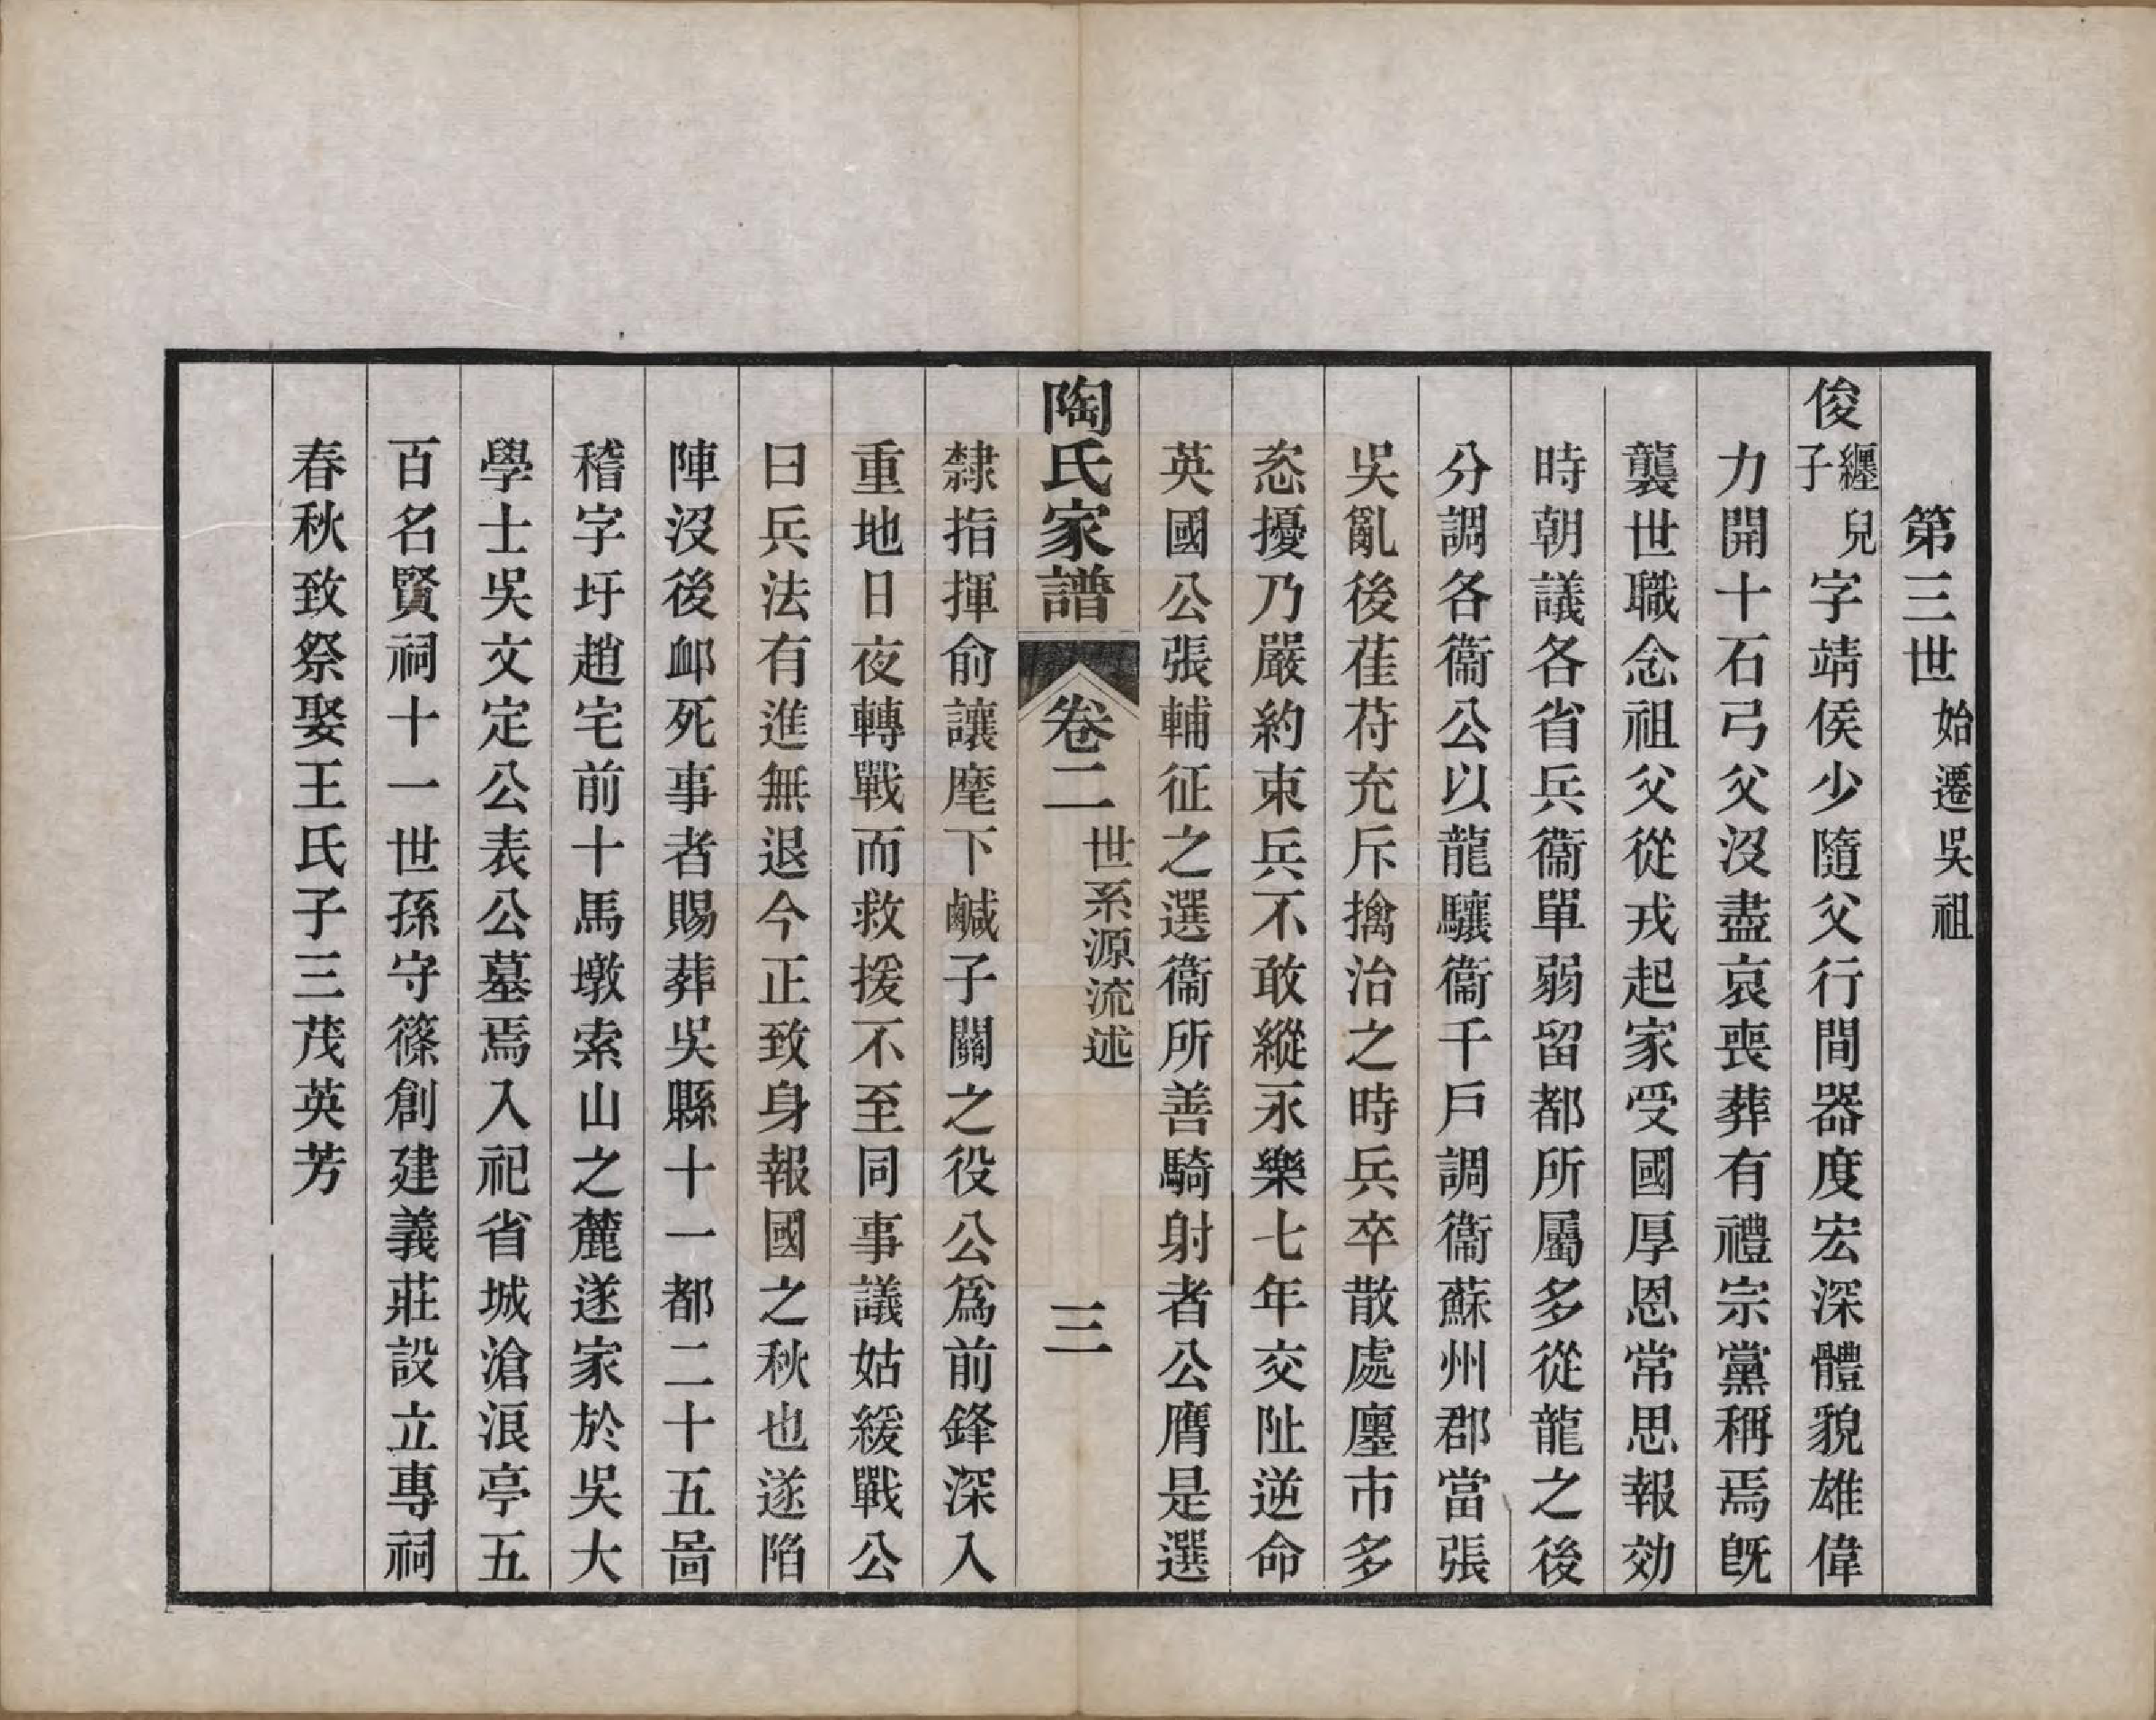 第三世始遷吳祖
俊纒兒子字靖侯少隨父行間器度宏深體貌雄偉
力開十石弓父沒盡哀喪葬有禮宗黨稱焉旣
襲世職念祖父從戎起家受國厚恩常思報効
時朝議各省兵衞單弱留都所屬多從龍之後
分調各衞公以龍驤衞千戶調衞蘇州郡當張
吳亂後萑苻充斥擒治之時兵卒散處廛市多
恣擾乃嚴約束兵不敢縱永樂七年交阯逆命
英國公張輔征之選衞所善騎射者公膺是選
陶氏家譜 卷二 世系源流述 三
隸指揮俞讓麾下鹹子關之役公爲前鋒深入
重地日夜轉戰而救援不至同事議姑緩戰公
曰兵法有進無退今正致身報國之秋也遂陷
陣沒後卹死事者賜葬吳縣十一都二十五啚
稽字圩趙宅前十馬墩索山之麓遂家於吳大
學士吳文定公表公墓焉入祀省城滄浪亭五
百名賢祠十一世孫守篠創建義莊設立專祠
春秋致祭娶王氏子三茂英芳